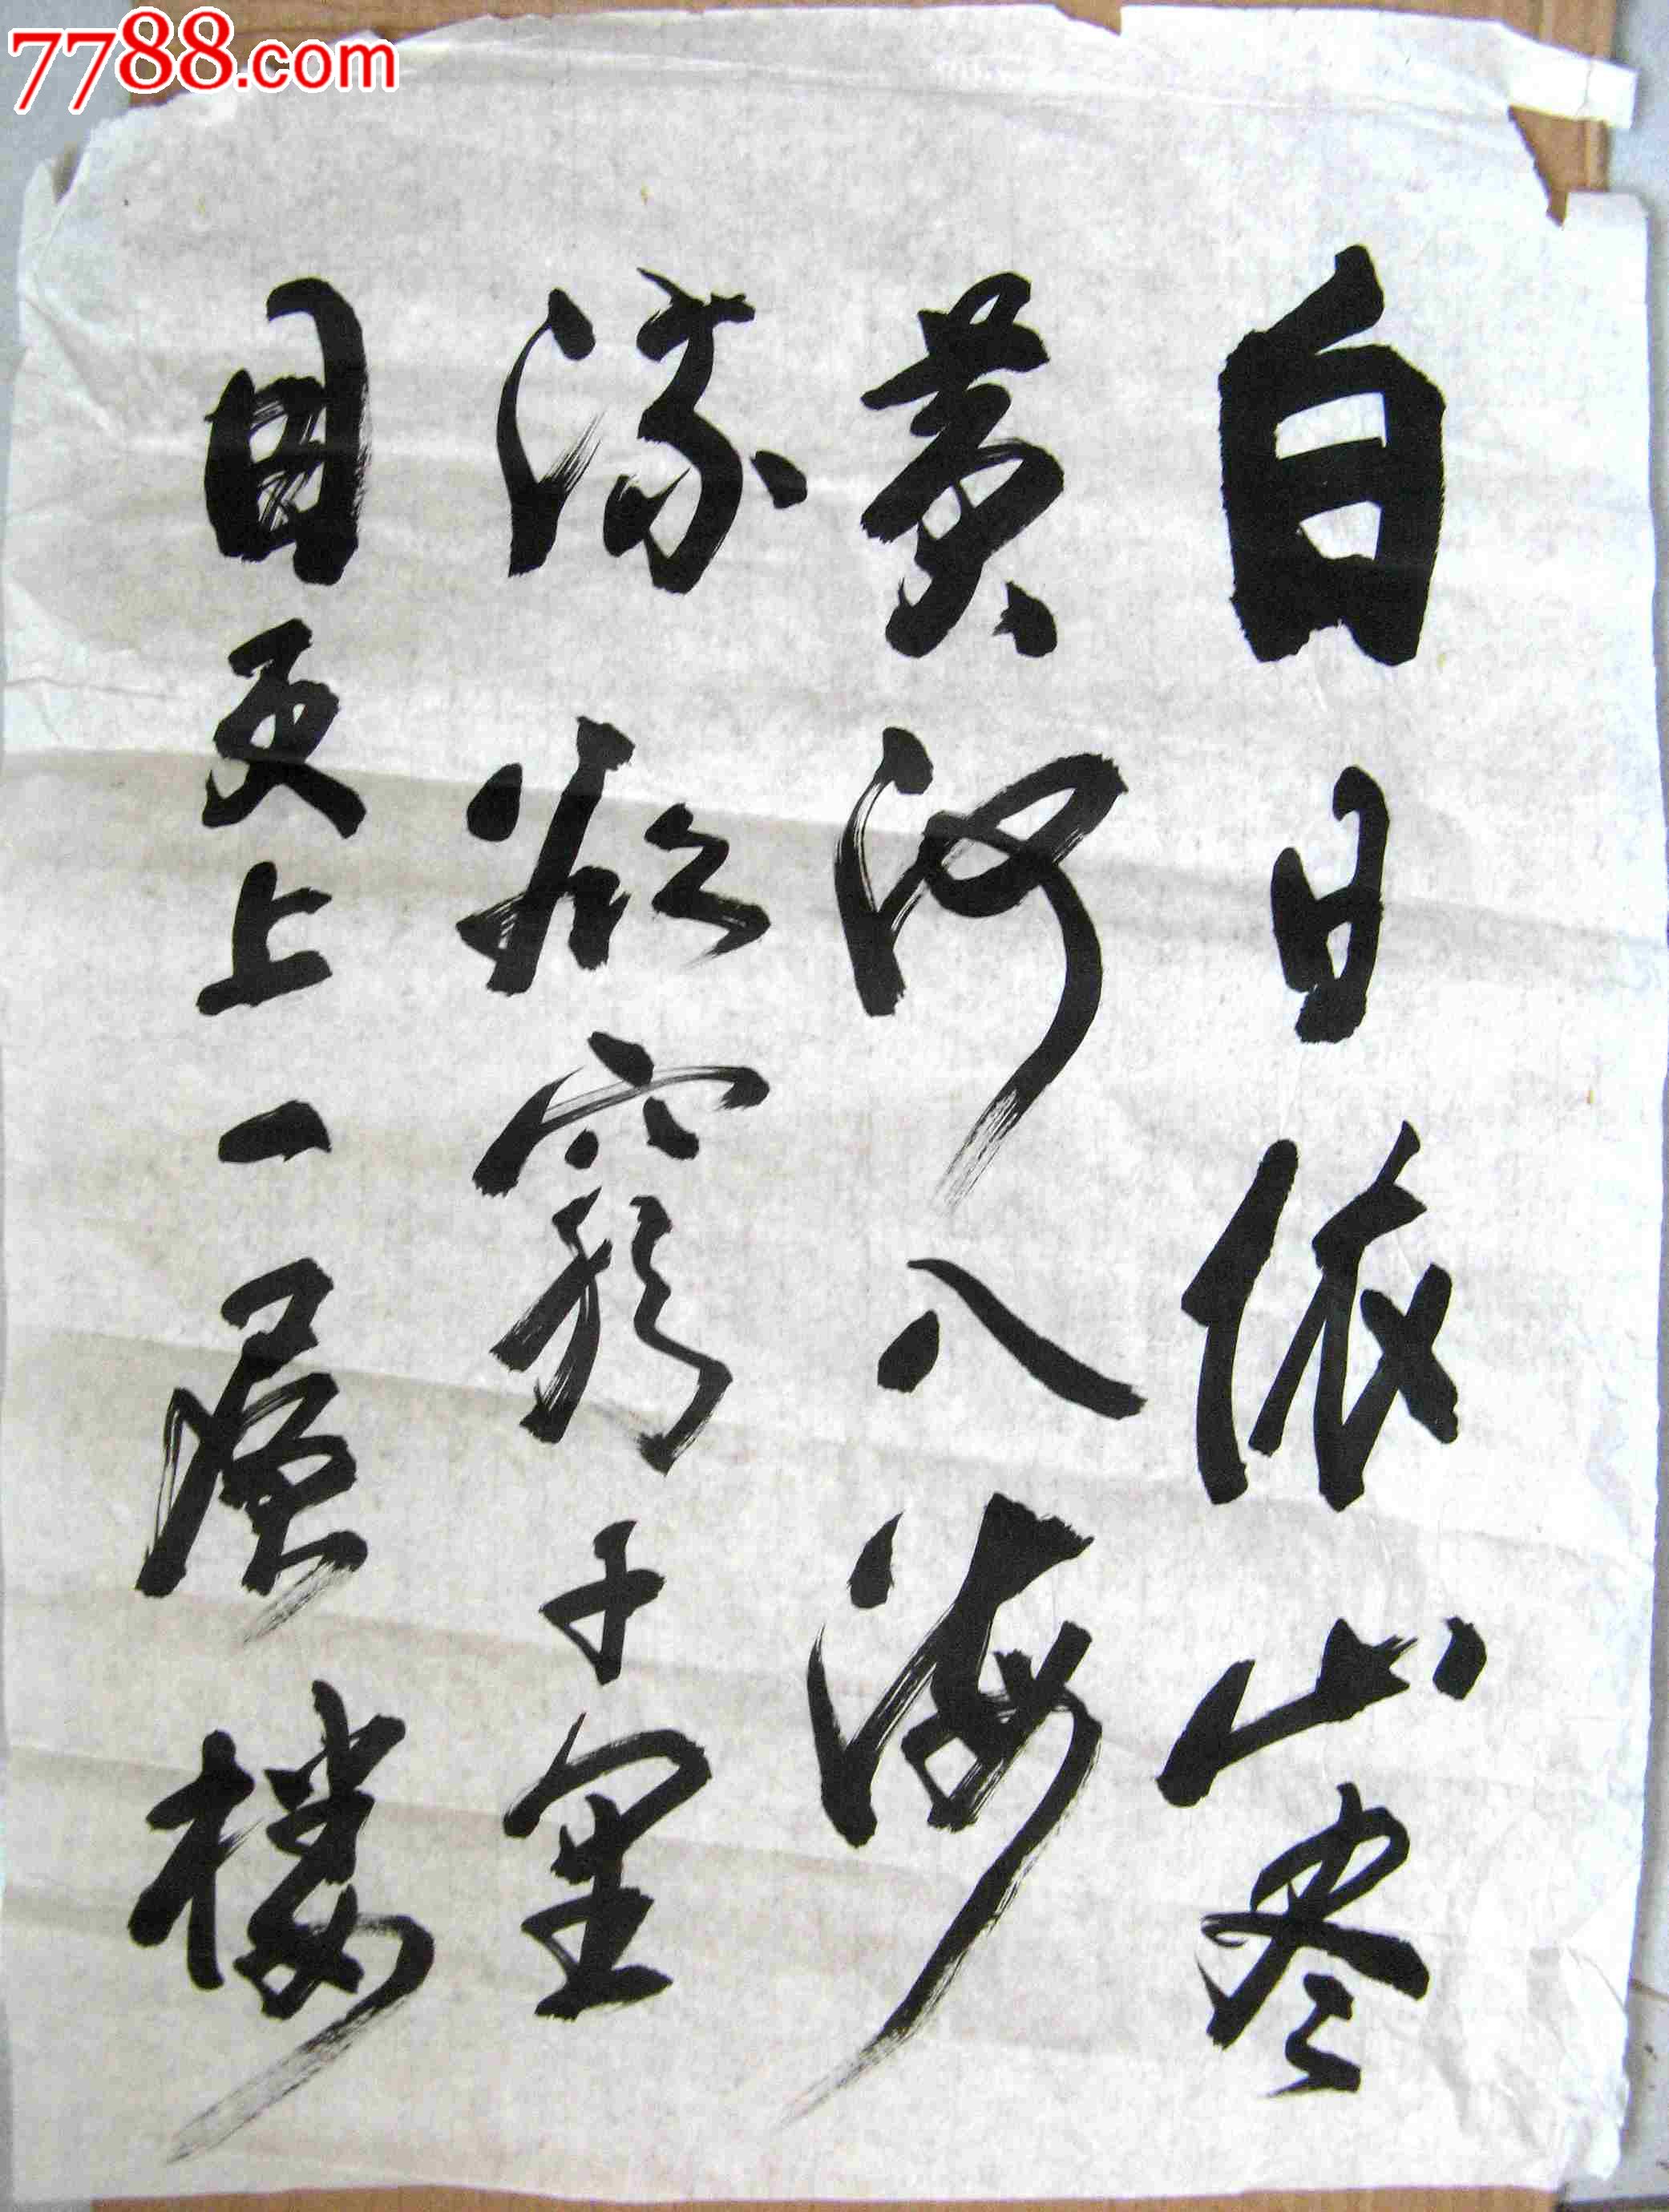 7788.com
白日依山尽
黄河入海
流欲穷千里
目更上一层楼